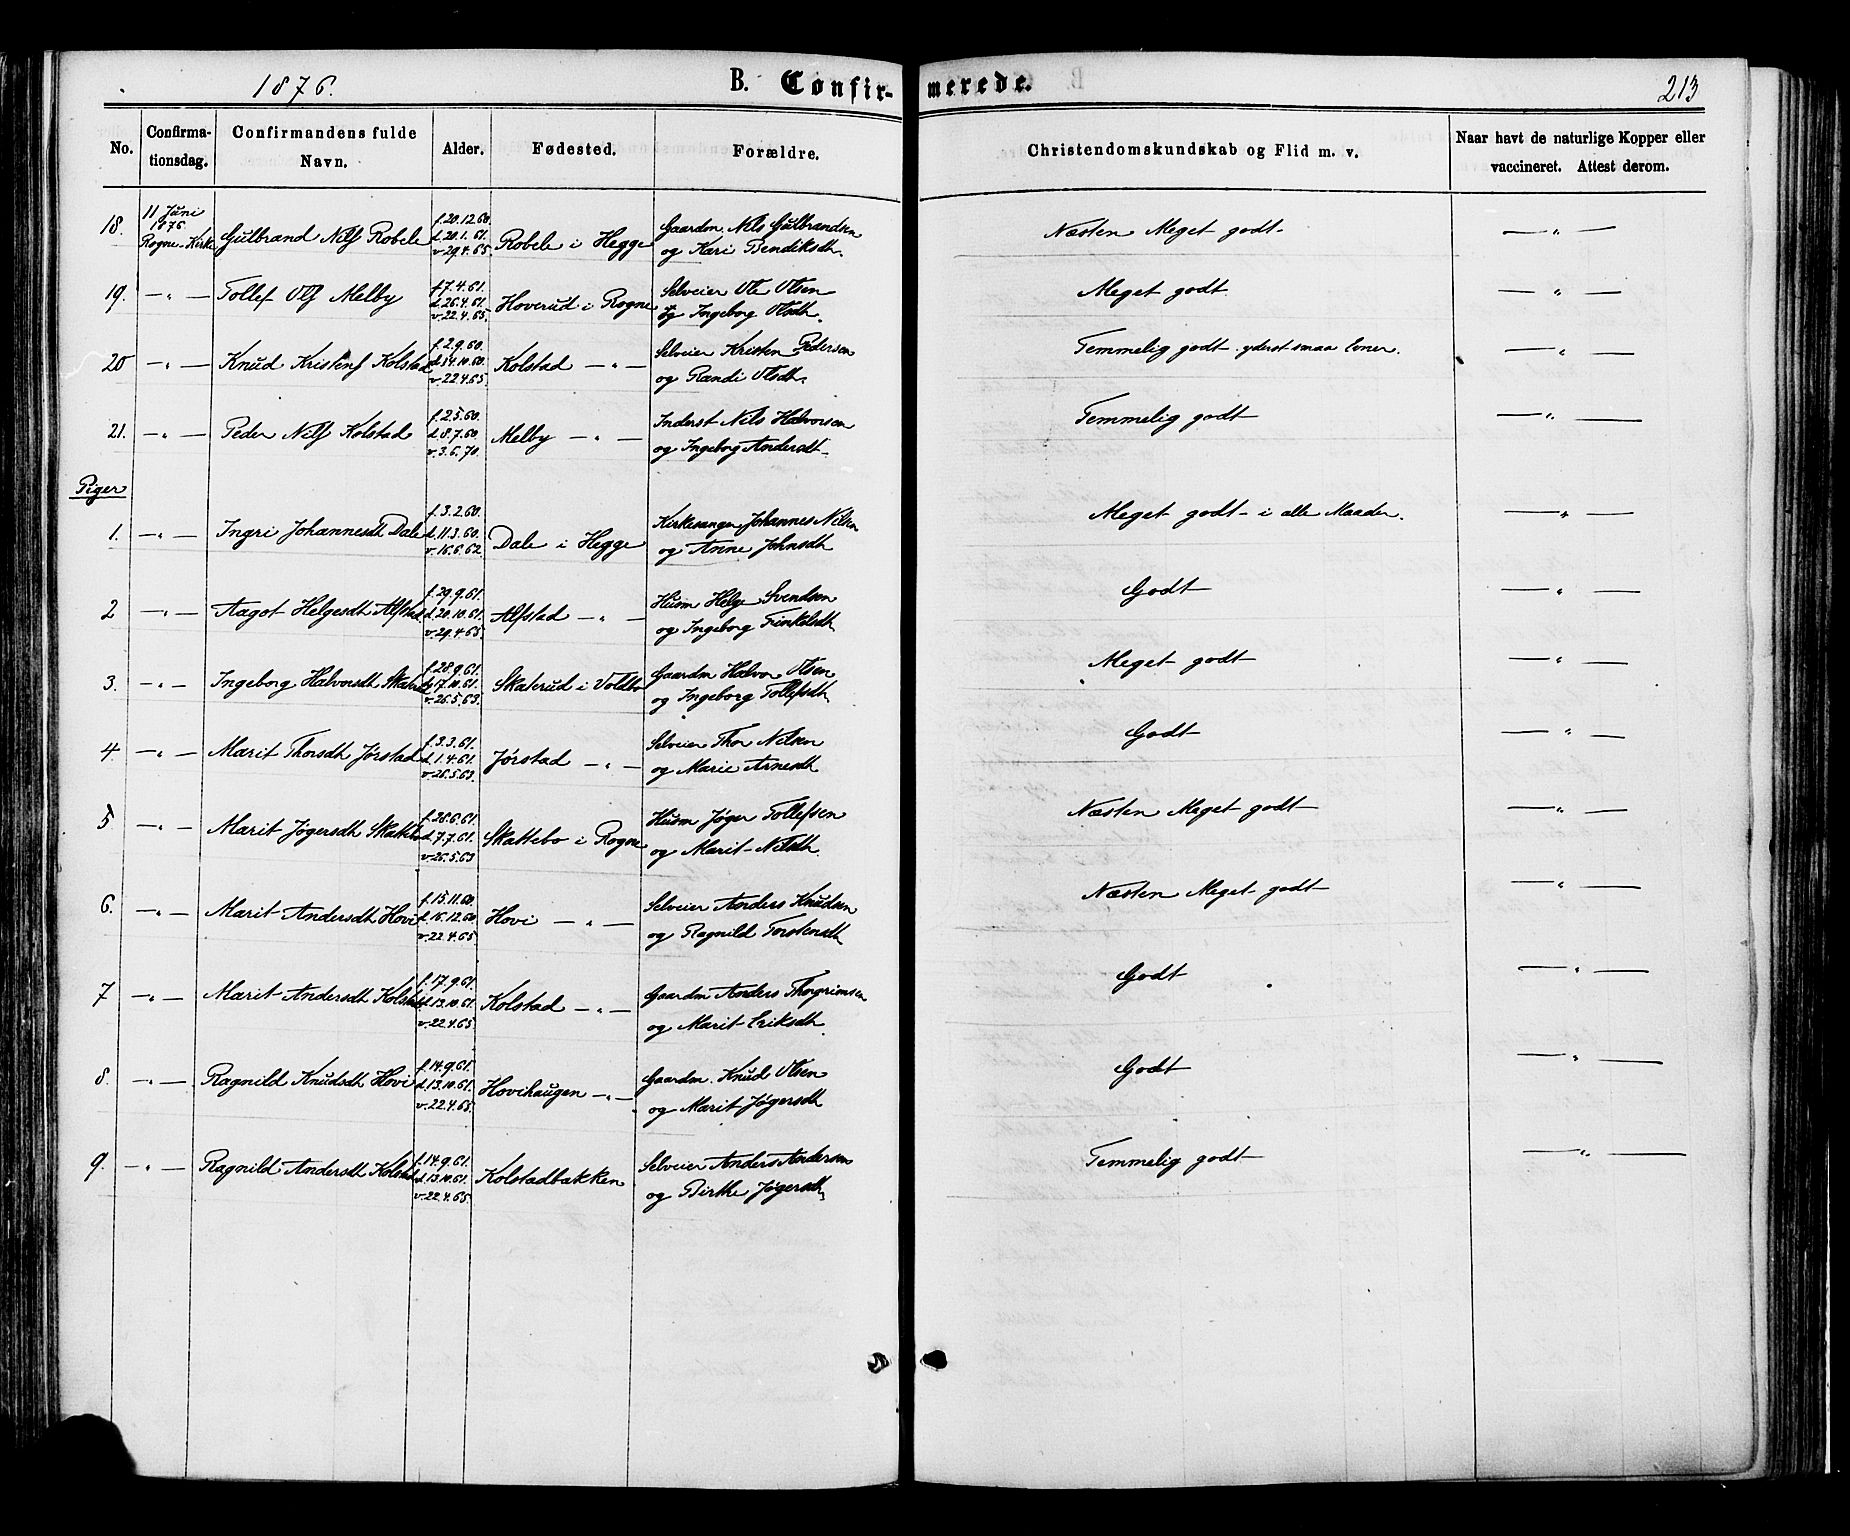 1876.
B. Confirmerede.
213
No.
Confirmationsdag.
Confirmandens fulde Navn.
Alder.
Fødested.
Forældre.
Christendomskundskab og Flid m. v.
Naar havt de naturlige Kopper eller vaccineret. Attest derom.
18. 11 Juni 1876 Rogne Kirke Gulbrand Nilss Robele f. 20.12.60. d. 20.1.61. v. 29.4.65. Robele i Hegge Gaardm. Nils Gulbrandsen og Kari Bendiksdt. Næsten Meget godt — „ —
19. — „ — Tollef Olss Melby f. 7.4.61. d. 26.4.61. v. 22.4.65. Hoverud i Rogne Selveier Ole Olsen og Ingeborg Olsdt. Meget godt. — „ —
20 — „ — Knud Kristenss Kolstad f. 2.9.60. d. 14.10.60. v. 22.4.65. Kolstad — „ — Selveier Kristen Pedersen og Randi Olsdt. Temmelig godt. yderst smaa Evner. — „ —
21. — „ — Peder Nilss Kolstad f. 2.5.60. d. 8.7.60. v. 3.6.70. Melby — „ — Inderst Nils Halvorsen og Ingeborg Andersdt Temmelig godt — „ —
Piger
1. — „ — Ingri Johannesdt Dale f. 3.2.60. d. 11.3.60. v. 16.6.62. Dale i Hegge Kirkesanger Johannes Nilsen og Anne Johnsdt Meget godt i alle Maader. — „ —
2 — „ — Aagot Helgesdt Alfstad f. 29.9.61. d. 20.10.61. v. 29.4.65. Alfstad — „ — Husm Helge Svendsen og Ingeborg Finkelsdt Godt — „ —
3. — „ — Ingeborg Halvorsdt f. 28.9.61. d. 17.10.61. v. 26.5.63. Skaterud i Voldbo Gaardm Halvor Olsen og Ingeborg Tollefsdt Meget godt — „ —
4. — „ — Marit Thorsdt Jørstad f. 3.3.61. d. 1.4.61. v. 26.5.63. Jørstad — „ — Selveier Thor Nilsen og Marie Arnesdt Godt — „ —
5 — „ — Marit Jøgersdt Skattebo f. 26.6.61. d. 7.7.61. v. 26.5.63 Skattebo i Rogne Husm Jøger Tollefsen og Marit Nilsdt. Næsten Meget godt — „ —
6. — „ — Marit Andersdt Hovi f. 15.11.60. d. 16.12.60 v. 22.4.65 Hovi — „ — Selveier Anders Knudsen og Ragnild Torstensdt Næsten Meget godt — „ —
7 — „ — Marit Andersdt Kolstad f. 17.9.61. d. 13.10.61. v. 22.4.65. Kolstad — „ — Gaardm Anders Thorgrimsen og Marit Eriksdt. Godt — „ —
8. — „ — Ragnild Knudsdt Hovi f. 14.9.61. d. 13.10.61. v. 22.4.65. Hovihaugen — „ — Gaardm. Knud Olsen og Marit Jøgersdt Godt — „ —
9. — „ — Ragnild Andersdt Kolstad f. 14.9.61. d. 13.10.61. v. 22.4.65. Kolstadbakken Selveier Anders Andersen og Birthe Jøgersdt Temmelig godt — „ —